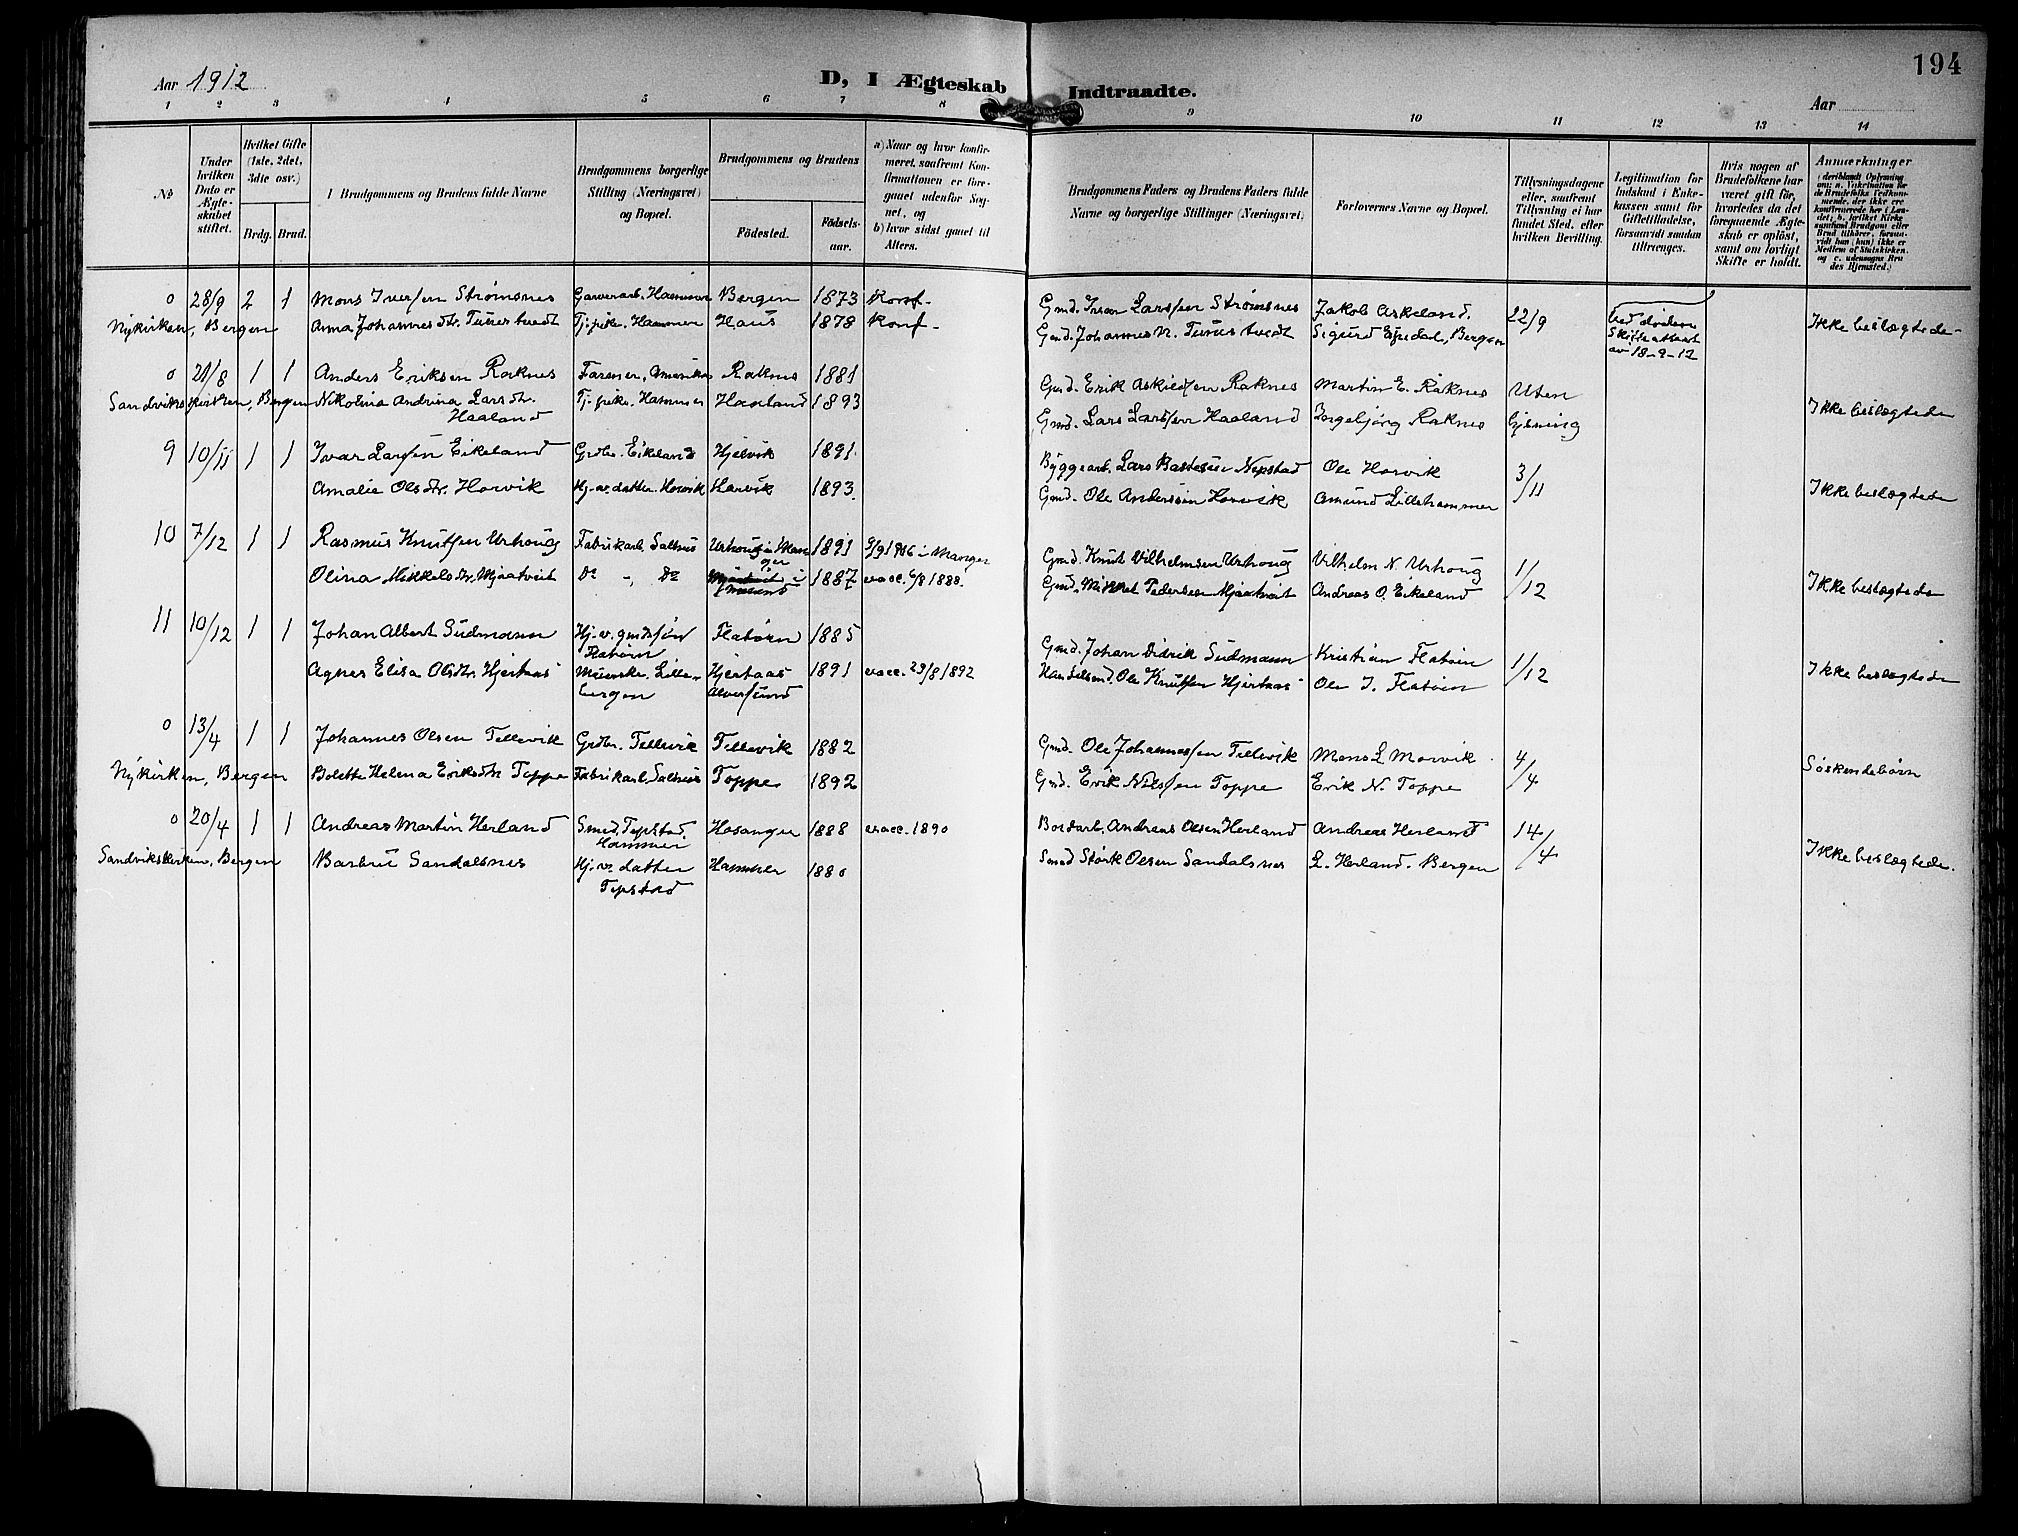 Aar 1912
D, I Ægteskab Indtraadte.
194
Aar
1 2 3 4 5 6 7 8 9 10 11 12 13 14
№
Under hvilken Dato er Ægteskabet stiftet.
Hvilket Gifte (1ste, 2det, 3dte osv.)
Brdg. Brud.
Brudgommens og Brudens fulde Navne
Brudgommens borgerlige Stilling (Næringsvei) og Bopæl.
Brudgommens og Brudens
Födested. Födselsaar.
a) Naar og hvor konfirmeret, saafremt Konfirmationen er foregaaet udenfor Sognet, og
b) hvor sidst gaaet til Alters.
Brudgommens Faders og Brudens Faders fulde Navne og borgerlige Stillinger (Næringsvei)
Forlovernes Navne og Bopæl.
Tillysningsdagene eller, saafremt Tillysning ei har fundet Sted, efter hvilken Bevilling.
Legitimation for Indskud i Enkekassen samt for Giftetilladelse, forsaavidt saadan tiltrænges.
Hvis nogen af Brudefolkene har været gift för, hvorledes da det foregaaende Ægteskab er oplöst, samt om lovligt Skifte er holdt.
Anmærkninger
0 28/9 2 1 Mons Iversen Strømsnes Garverarb. Hammer Bergen 1873 Konf- Gmd. Iver Larssen Strømsnes Jakob Askeland. 22/9
Nykirken, Bergen Anna Johannesdtr. Tunestvedt Tj. pike. Hammer Haus 1878 Konf- Gmd. Johannes N. Tunestvedt Sigurd Espedal, Bergen Skifteattest av 18-9-12 Ikke beslægtede-
0 21/8 1 1 Anders Eriksen Raknes Farmer, Amerika Raknes 1881 Gmd. Erik Askildsen Raknes Martin E. Raknes Uten
Sandvikskirken, Bergen Nikolina Andrina Larsdtr. Haaland Tj. pike. Hammer Haaland 1893 Gmd. Lars Larssen Haaland Ingebjørg Raknes lysning Ikke beslægtede
9 10/11 1 1 Ivar Larsen Eikeland Grdbr. Eikeland Hjelvik 1891 Byggearb. Lars Bastesen Nepstad Ole Horvik 3/11
Amalie Olsdtr. Horvik Hj. v. datter. Horvik Horvik 1893 Gmd. Ole Andersen Horvik Amund Lillehammer Ikke beslægtede
10 7/12 1 1 Rasmus Knutsen Urhoug Fabrikarb. Salhus Urhoug i Manger 1891 9/9 1906 i Manger Gmd. Knut Vilhelmsen Urhoug Vilhelm N. Urhoug 1/12
Olina Mikkelsdtr. Mjaatveit Do - Do 1887 vacc. 6/8 1888. Gmd. Mikkel Pedersen Mjaatveit Andreas O. Eikeland Ikke beslægtede
11 10/12 1 1 Johan Albert Sudmann Hj. v. gmdssøn Flatøen Flatøen 1885 Gmd. Johan Didrik Sudmann Kristian Flatøen 1/12
Agnes Elisa Olsdtr. Hjertaas Lillebergen Hjertaas Alversund 1891 vacc. 23/8 1892 Ole Knutsen Hjertaas Ole J. Flatøen Ikke beslægtede
0 13/4 1 1 Johannes Olsen Tellevik Grdbr. Tellevik Tellevik 1882 Gmd. Ole Johannessen Tellevik Mons L. Morvik 4/4
Nykirken, Bergen Bolette Helena Eriksdtr Toppe Fabrikarb. Salhus Toppe 1892 Gmd. Erik Nilssen Toppe Erik N. Toppe Søskendebørn
0 20/4 1 1 Andreas Martin Herland Smed, Tepstad, Hammer Hosanger 1888 vacc. 1890 Bordarb. Andreas Olsen Herland Andreas Herland 14/4
Sandvikskirken, Bergen Barbru Sandalsnes Hj. v. datter Tepstad Hammer 1880 Smed Størk Olsen Sandalsnes L. Herland. Bergen Ikke beslægtede.